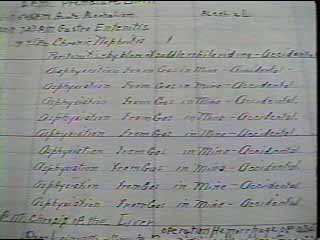 Acute Alcoholism Alcohol
Gastro Enteritis
Chronic Nephritis
Peritonitis - by blow of saddle while riding - Accidental
Asphyxiation from Gas in Mine - Accidental.
Asphyxiation from Gas in Mine - Accidental.
Asphyxiation from Gas in Mine - Accidental.
Asphyxiation from Gas in Mine - Accidental.
Asphyxiation from Gas in Mine - Accidental.
Asphyxiation from Gas in Mine - Accidental.
Asphyxiation from Gas in Mine - Accidental.
Asphyxiation from Gas in Mine - Accidental.
Asphyxiation from Gas in Mine - Accidental.
P.M. of the Liver operation Hemorrhage of